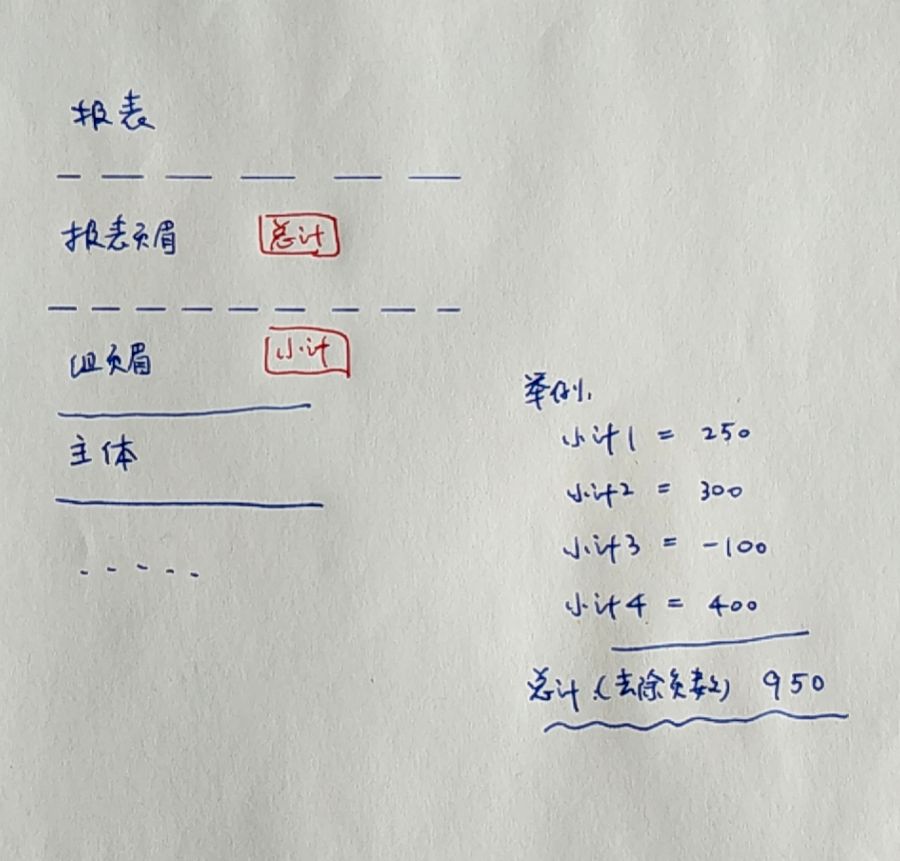 报表
报表页眉 总计
组页眉 小计
主体
.....
举例:
小计1 = 250
小计2 = 300
小计3 = -100
小计4 = 400
总计(去除负数) 950